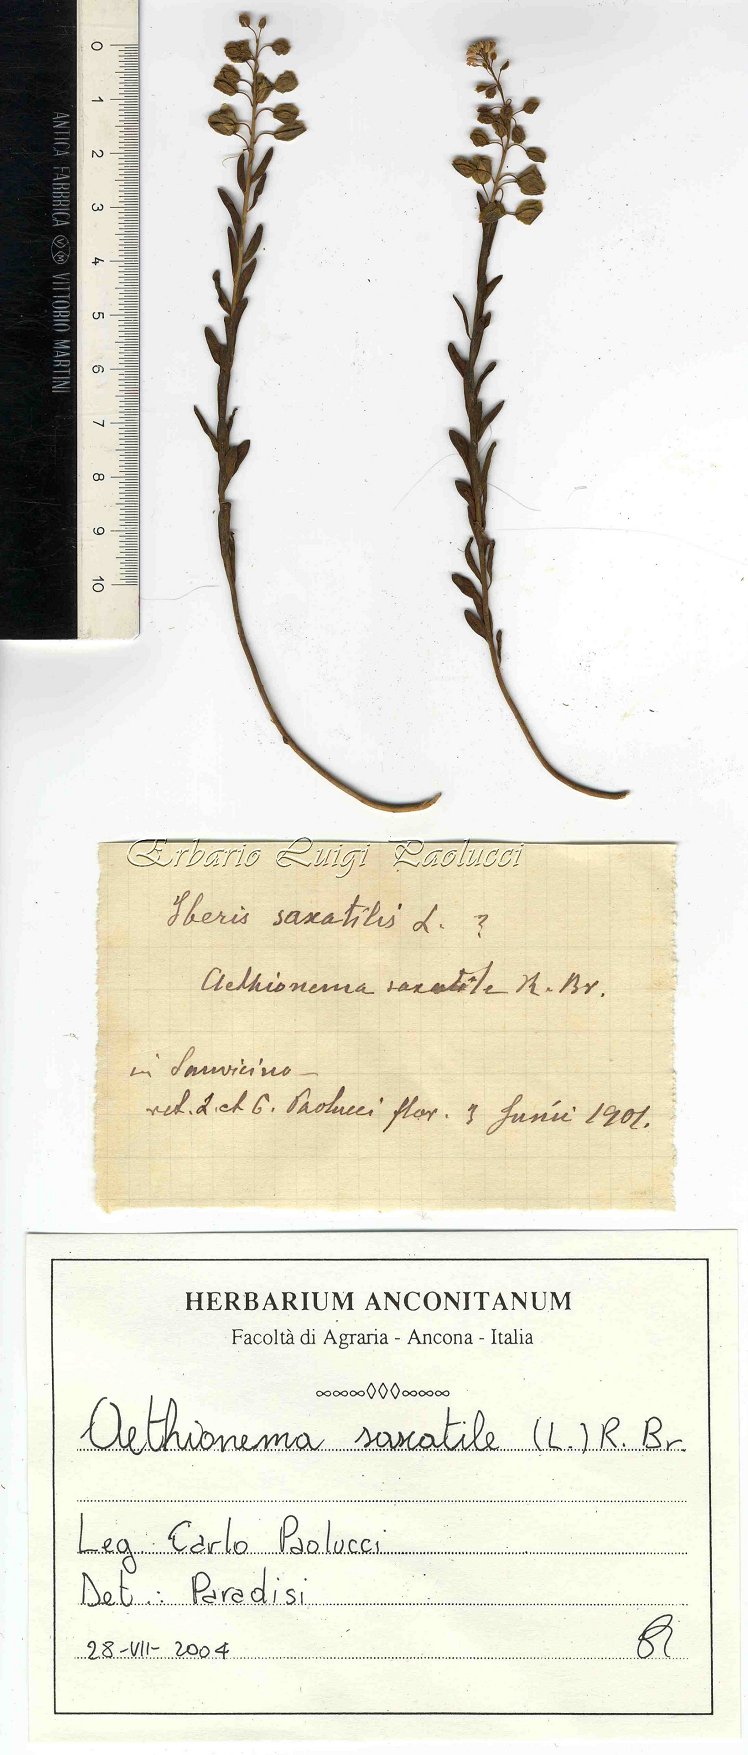 0
1
2
3
4
5
6
7
8
9
10
ANTICA FABBRICA VM VITTORIO MARTINI
Erbario Luigi Paolucci
Iberis saxatilis L. ?
Aethionema saxatile R. Br.
in Sanvicino -
L. et C. Paolucci flor. 3 Junii 1901.
HERBARIUM ANCONITANUM
Facoltà di Agraria - Ancona - Italia
Aethionema saxatile (L.) R. Br.
Leg. Carlo Paolucci
Det.: Paradisi
28-VII-2004